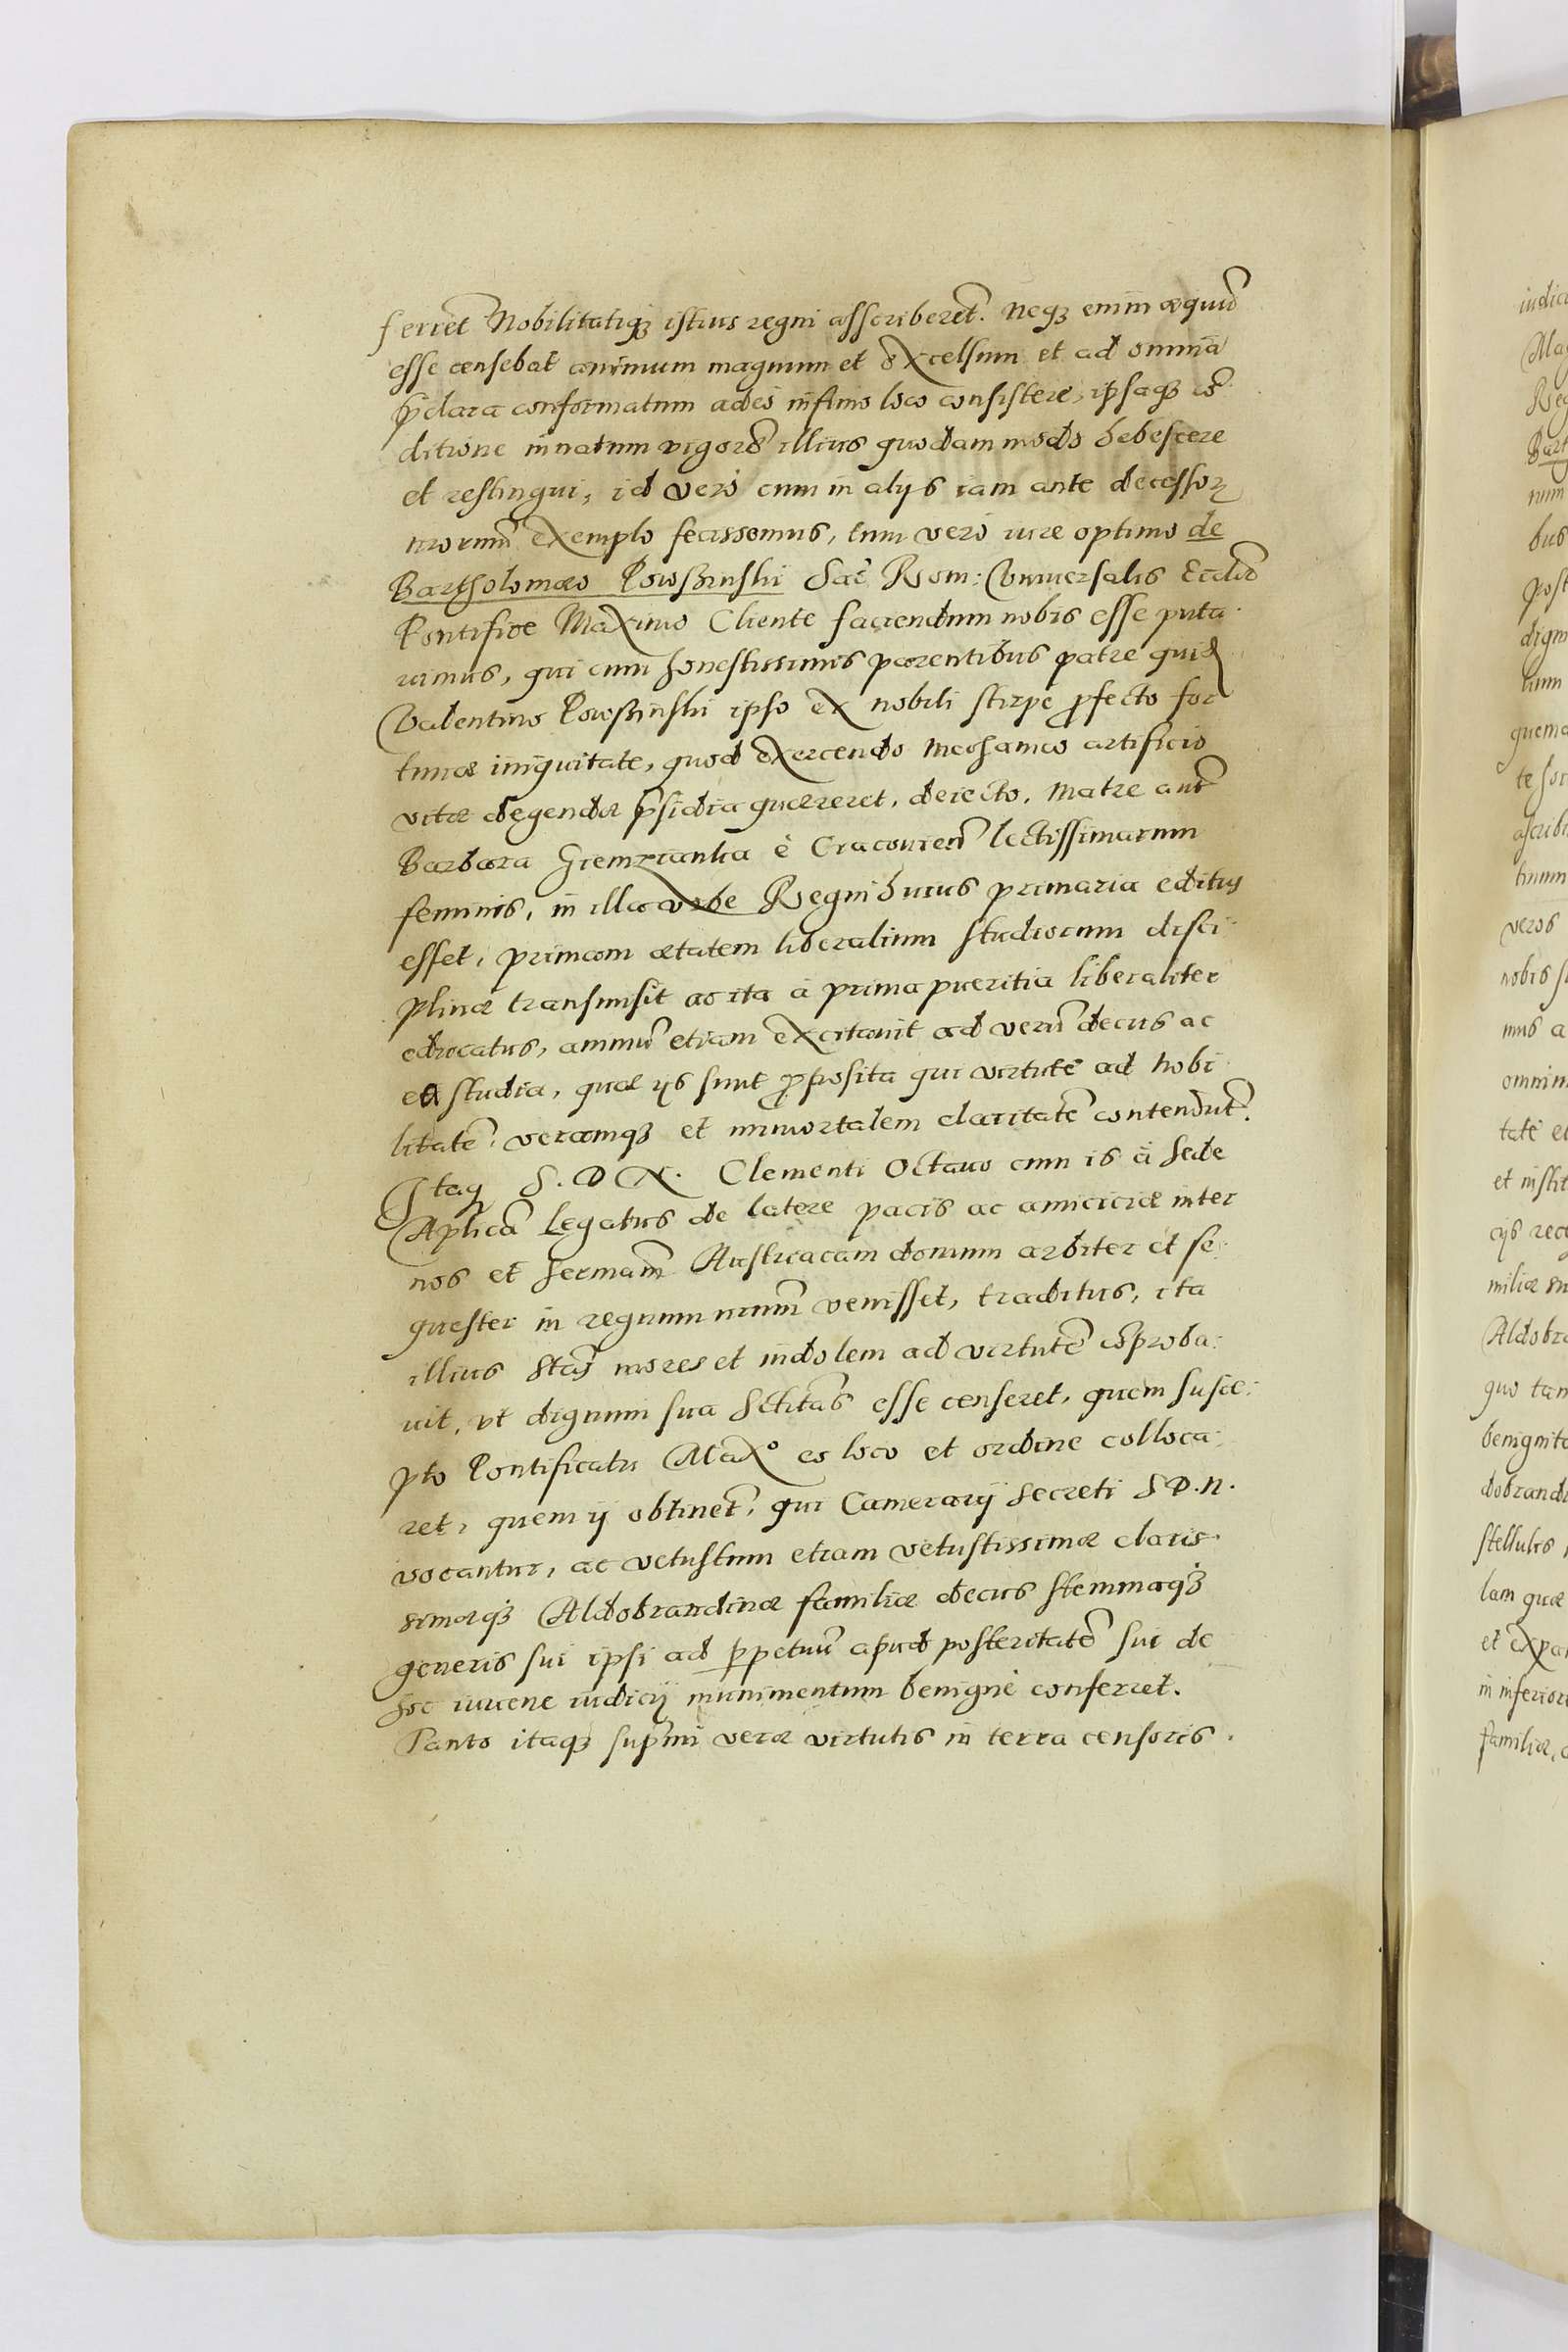 ferret Nobilitatiqꝫ istius regni asscriberet̃. Neqꝫ enim æquũ
esse censebat animum magnum et excelsum et ad omnia
p̃clara conformatum adeò infimo loco consistere, ipsaqꝫ cõ
ditione innatum vigorẽ illius quodammodo hebescere
et restingui, id verò cum in alijs iam ante decessorꝫ
nrorum̃ exemplo fecissemus, tum verò iure optimo de
Bartholomæo Powsinski Sac̃ Rom: Vniuersalis Eccliæ
Pontifice Maximo Cliente faciendum nobis esse puta
uimus, qui cum honestissimis parentibus patre quid̃
Valentino Powsinski ipso ex nobili stirpe ꝓfecto for
tunæ iniquitate, quod exercendo mechanico artificio
vitæ degendæ p̃sidia quæreret, deiecto, matre aut̃
Barbara Gremzianka è Cracouien̄ lectissimarum
feminis, in illa vrbe Regni huius primaria editus
esset, primam ætatem liberalium studiorum disci
plinæ transmisit ac ita à prima pueritia liberaliter
educatus, animũ etiam excitauit ad verũ decus ac
ea studia, quæ ijs sunt ꝓposita qui virtutẽ ad nobi
litatẽ, veramqꝫ et immortalem claritatẽ contendũt.
Itaqꝫ S. D N. Clementi Octauo cum is à Sede
Aplica Legatus de latere pacis ac amiciciæ inter
nos et Sermam̃ Austriacam domum arbiter et se
quester in regnum nrum̃ venisset, traditus, ita
illius Stas̃ mores et indolem ad virtutẽ cõproba:
uit, vt dignum sua Sctitas̃ esse censeret, quem susce:
pto Pontificatu Maxº eo loco et ordine colloca:
ret, quem ij obtinet̃, qui Camerarij Secreti S D. N.
vocantur, ac vetustum etiam vetustissimæ claris
simæqꝫ Aldobrandinæ familiæ decus stemmaqꝫ
generis sui ipsi ad ꝑpetuũ apud posteritatẽ sui de
hoc iuuene iudicij munimentum benignè conferret.
Tanto itaqꝫ sup̃mi veræ virtutis in terra censoris.